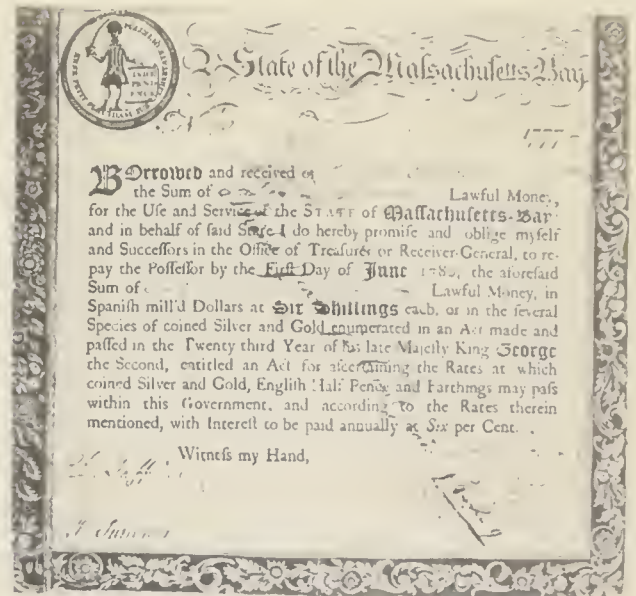 INDE
PEND
ENCE
State of the Massachusetts Bay
1777
BOrrowed and received of
the Sum of Lawful Money,
for the Uſe and Service of the STATE of Maſſachuſetts-Bay
and in behalf of ſaid State I do hereby promiſe and oblige myſelf
and Succeſſors in the Office of Treaſurer or Receiver-General, to re-
pay the Poſſeſſor by the Firſt Day of June the aforeſaid
Sum of Lawful Money, in
Spaniſh mill'd Dollars at Six Shillings each, or in the ſeveral
Species of coined Silver and Gold enumerated in an Act made and
paſſed in the Twenty third Year of his late Majeſty King George
the Second, entitled an Act for aſcertaining the Rates at which
coined Silver and Gold, Engliſh Half Pence and Farthings may paſs
within this Government, and according to the Rates therein
mentioned, with Intereſt to be paid annually at Six per Cent.
Witneſs my Hand,